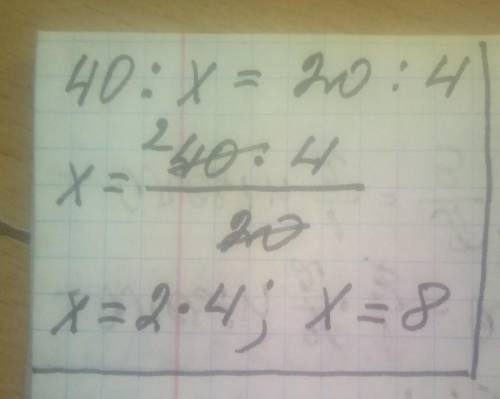 40 : x = 20 : 4
x = 2 40 · 4
20
x = 2 · 4 ; x = 8